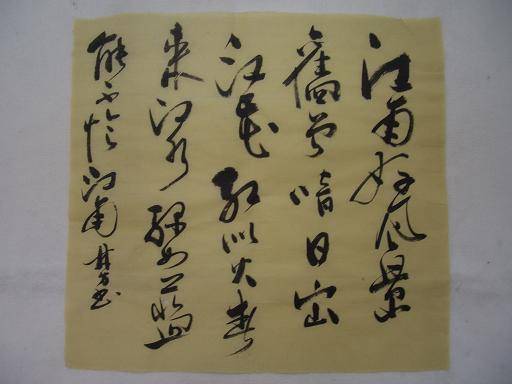 江南好风景
舊曾谙日出
江花红似火春
来江水绿如蓝
能不忆江南书